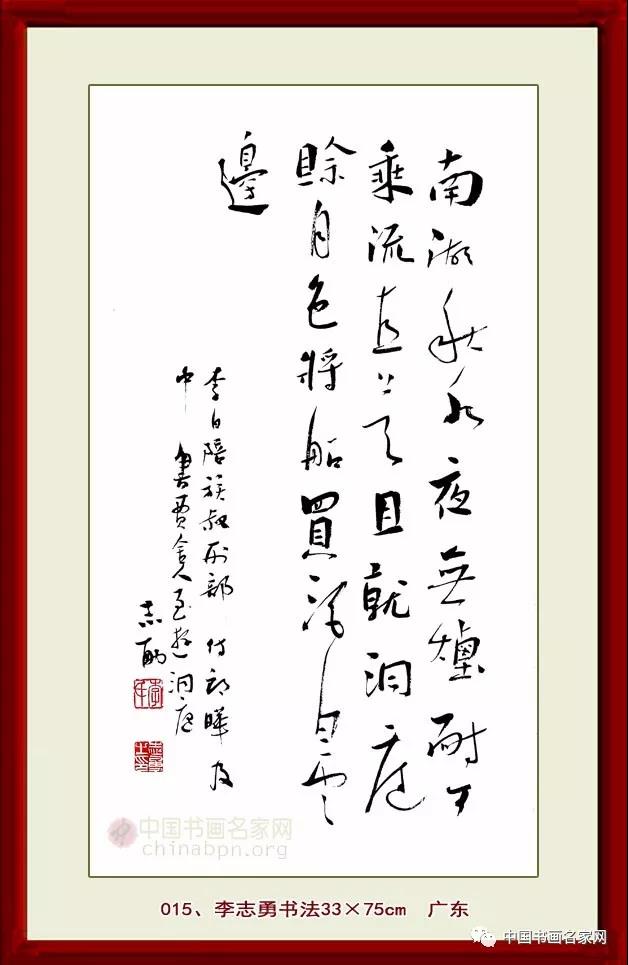 南湖秋水夜無煙耐可
乘流直上天且就洞庭
賒月色將船買酒白雲
邊
李白陪族叔刑部侍郎曄及
中書賈舍人至遊洞庭
志勇
中国书画名家网
chinabpn.org
015、李志勇书法33×75cm 广东
中国书画名家网